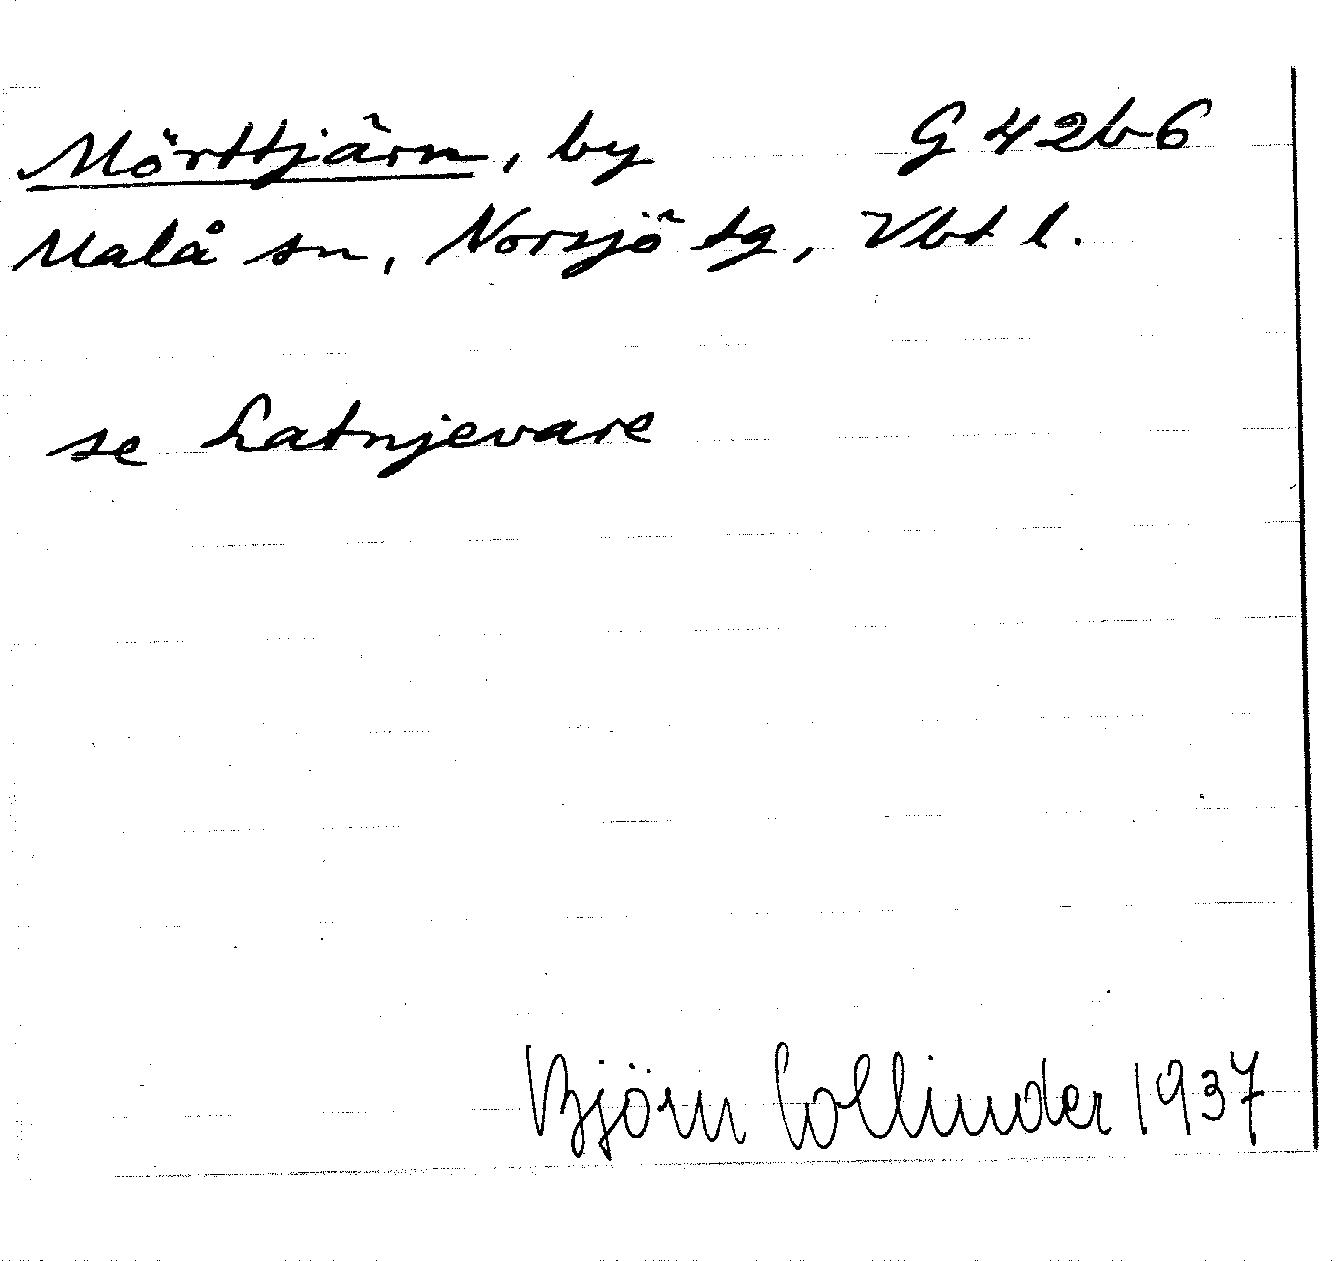 Mörttjärn, by G 42b6
Malå sn, Norsjö tg, Vbt l.
se Latnjevare
Björn Collinder 1937